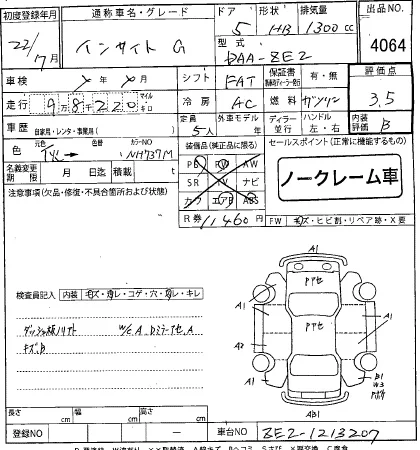 初度登録年月 通称車名・グレード ドア 形状 排気量 出品NO
22/7月 インサイト G 5 HB 1300cc
型式 DAA-ZE2 4064
車検 年 月 シフト FAT 保証書 有・無 評価点
走行 9万8千220 マイル キロ 冷房 AC 燃料 ガソリン 3.5
車歴 自家用・レンタ・事業用( ) 定員 5人 外車モデル 年 ディーラー 並行 ハンドル 左・右 内装評価 B
色 元色 → 色替 カラーNO NH737M 装備品(純正品に限る) セールスポイント(正常に機能するもの)
名義変更期限 月 日迄 積載 t PS PW AW
SR TV ナビ
カワ エアB ABS
ノークレーム車
注意事項(欠品・修復・不具合箇所および状態)
R券 11460円 FW キズ・ヒビ割・リペア跡・X要
検査員記入 内装 キズ・汚レ・コゲ・穴・切レ・キレ
キズ、B
A1
A1
A1
A2
A1
B1
AB1
長さ cm 幅 cm 高さ cm
登録NO 車台NO ZE2-1213207